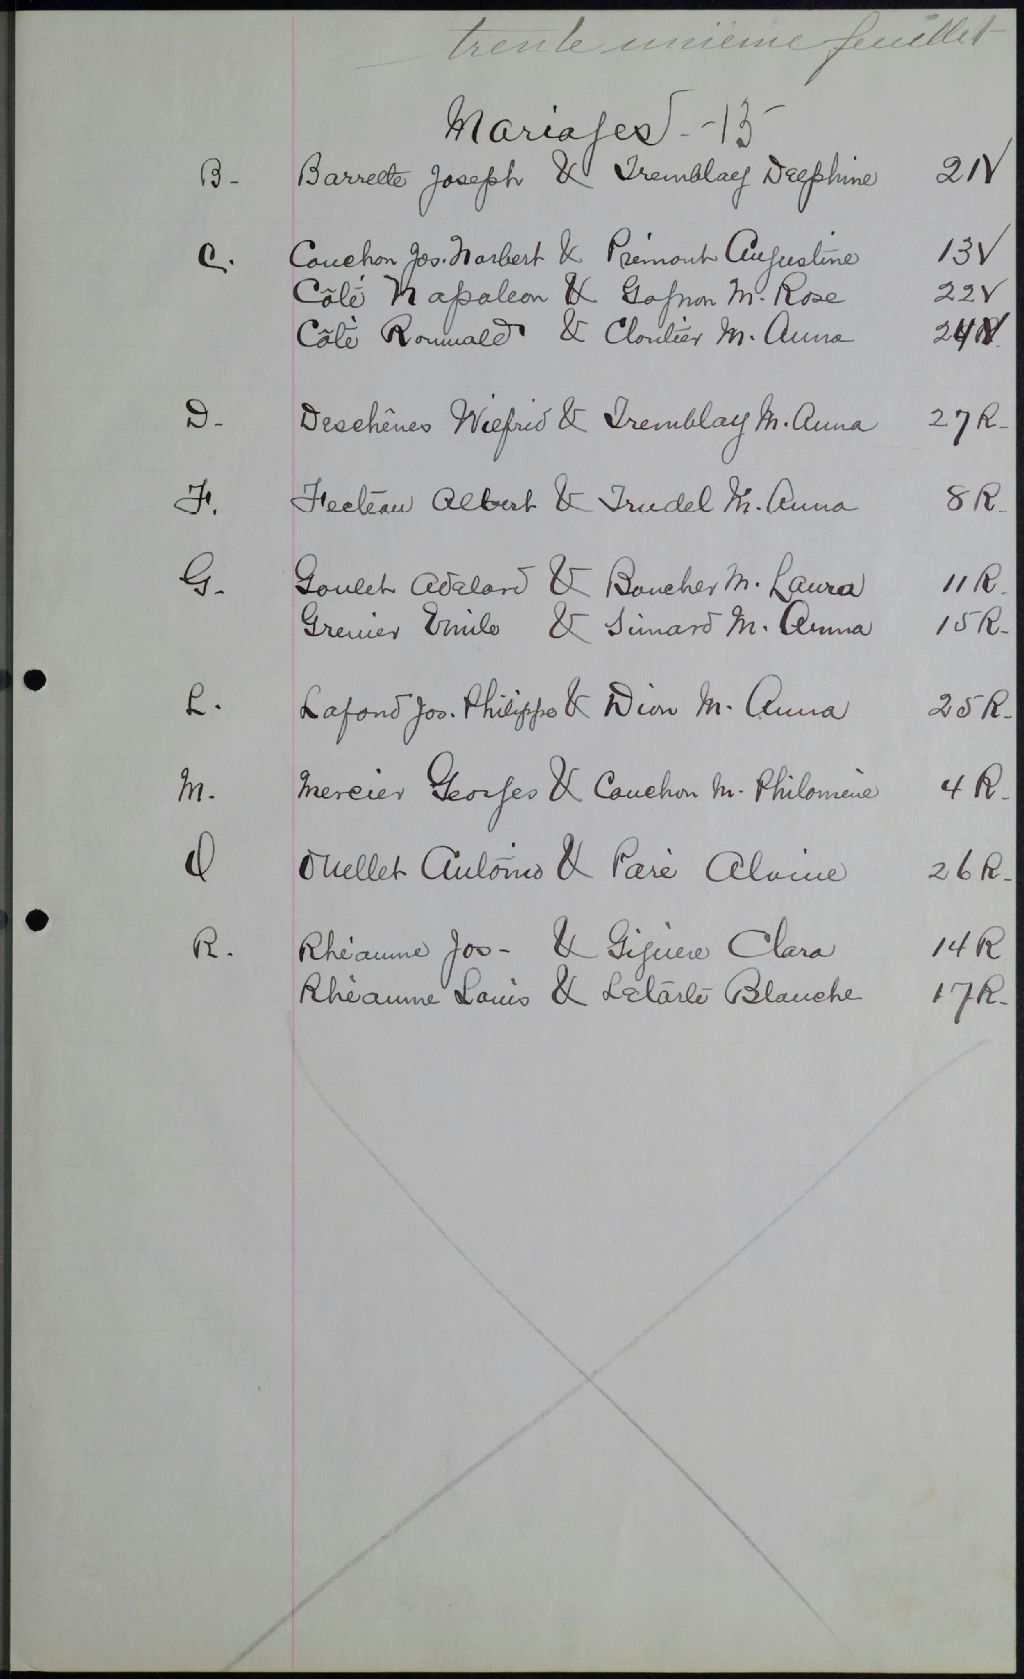 trente unième feuillet
Mariages - 13
B - Barrette Joseph & Tremblay Delphine 21V
C. Cauchon Jos. Norbert & Prémont Augustine 13V
Côté Napoléon & Gagnon M. Rose 22V
Côté Romuald & Cloutier M. Anna
D - Deschênes Wilfrid & Tremblay M. Anna 27R-
F. Fecteau Albert & Trudel M. Anna 8R-
G. Goulet Adélard & Boucher M. Laura 11R-
Grenier Emile & Simard M. Anna 15R-
L. Lafond Jos. Philippe & Dion M. Anna 25R-
M. Mercier Georges & Cauchon M. Philomène 4R-
O Ouellet Antonio & Paré Alvine 26R-
R. Rhéaume Jos - & Giguère Clara 14R
Rhéaume Louis & Letarte Blanche 17R-